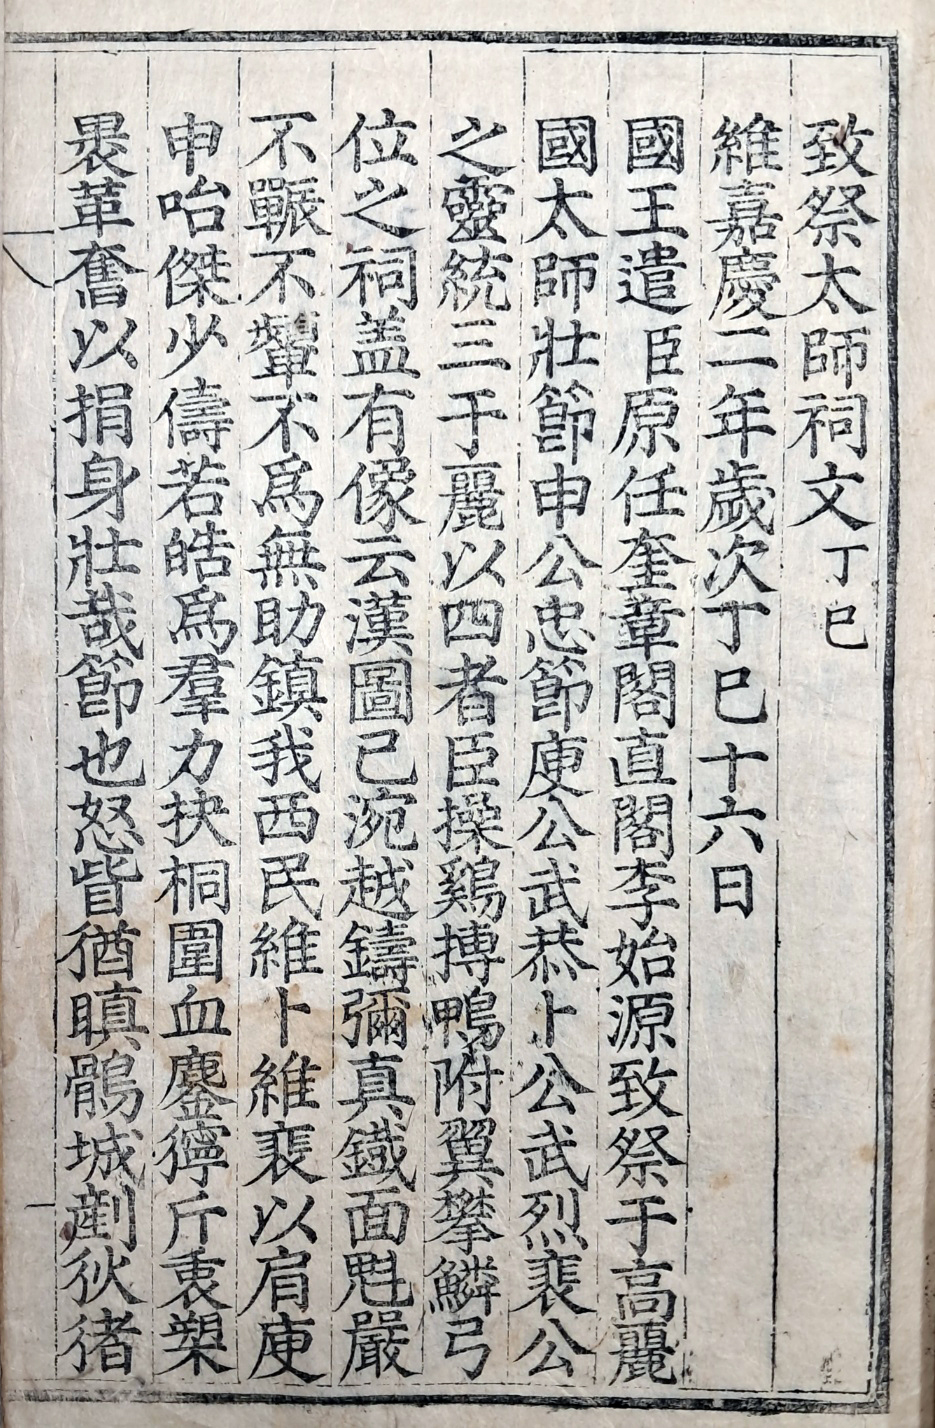 致祭太師祠文丁巳
維嘉慶二年歲次丁巳十六日
國王遣臣原任奎章閣直閣李始源致祭于高麗
國太師壯節申公忠節庾公武恭卜公武烈裵公
之靈統三于麗以四者臣操鷄搏鴨附翼攀鱗弓
位之祠盖有像云漢圖已涴越鑄彌真鐵面魁嚴
不囅不顰不爲無助鎮我西民維卜維裵以肩庾
申咍傑少儔若皓爲羣力抉桐圍血鏖獰斤衷槊
褁革奮以捐身壯哉節也怒眥猶瞋鶻城剷狄猪